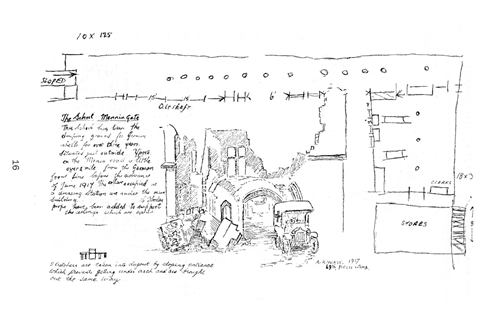 10 X 125
SLOPED
15'
6'
Air shaft
The School Menin Gate
This School has been the
dumping ground for German
shells for over three years.
Situated just outside Ypres
on the Menin road a little
over a mile from the German
front lines before the advance
of June 1917 The cellar occupied as
a dressing station is under the main
building.
props have been added to support
the ceilings which are
CLERKS
STORES
16
Stretchers are taken into dugout by sloping entrance
which prevents getting under arch and are brought
out the same way
1917